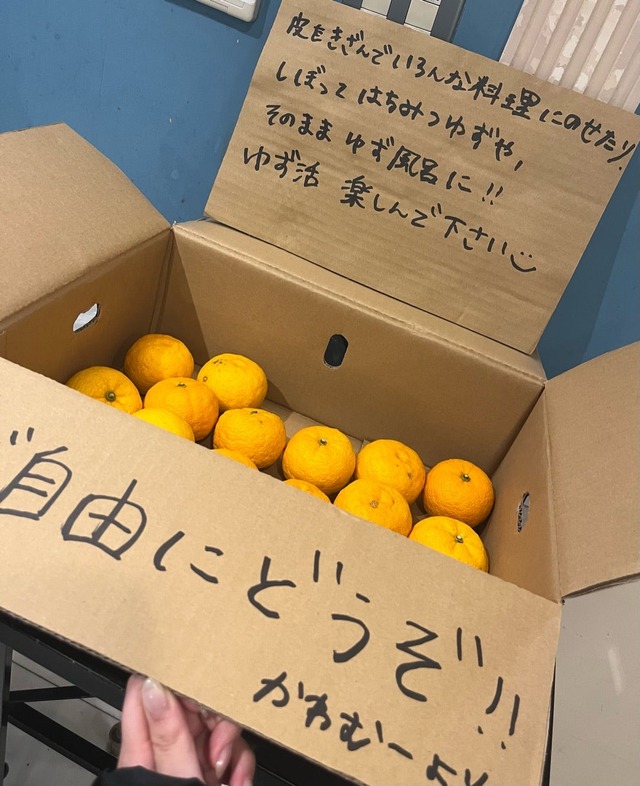 皮をきざんでいろんな料理にのせたり、
しぼって はちみつゆずや、
そのまま ゆず風呂に!!
ゆず活 楽しんで下さい
ご自由にどうぞ!!
かわむーより